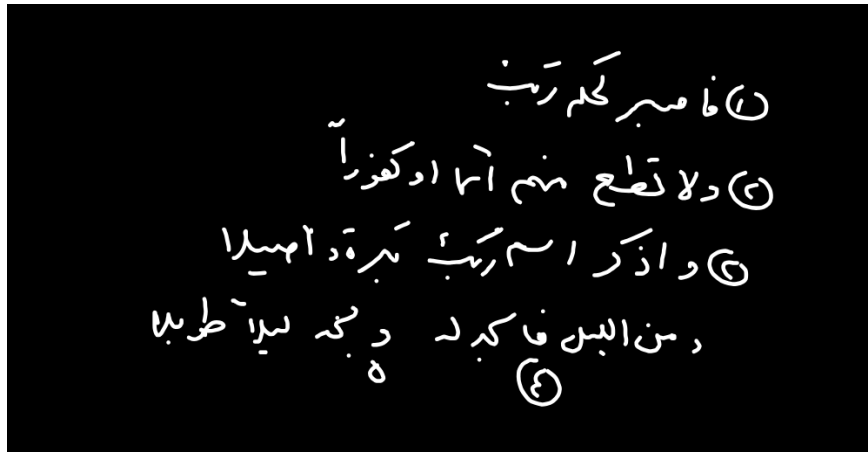 ① فاصبر لحكم ربك
② ولا تطع منهم آثما او كفوراً
③ و اذكر اسم ربك بكرة و أصيلا
و من الليل فاسجد له و سبحه ليلاً طويلا
④ ٥